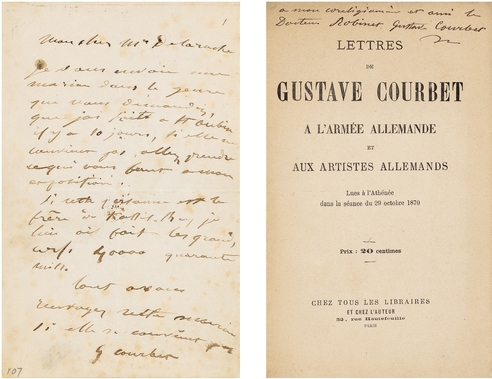 1
mon cher Mr Delaroche
je vous envoie une
marine dans le genre
que vous demandez,
que j'ai faite a St Aubin
il y a 10 jours, si elle ne
convient pas, allez prendre
ce qui vous faut a mon
exposition.
Si cette personne est le
frère de
lui ai fait les grands
cerfs 40000 quarante
mille.
tout a vous
renvoyez cette marine
si elle ne convient pas
G Courbet
107
a mon coreligionnaire et ami le
Docteur Robinet Gustave Courbet
LETTRES
DE
GUSTAVE COURBET
A L'ARMÉE ALLEMANDE
ET
AUX ARTISTES ALLEMANDS
Lues à l'Athénée
dans la séance du 29 octobre 1870
Prix : 20 centimes
CHEZ TOUS LES LIBRAIRES
ET CHEZ L'AUTEUR
32, rue Hautefeuille
PARIS